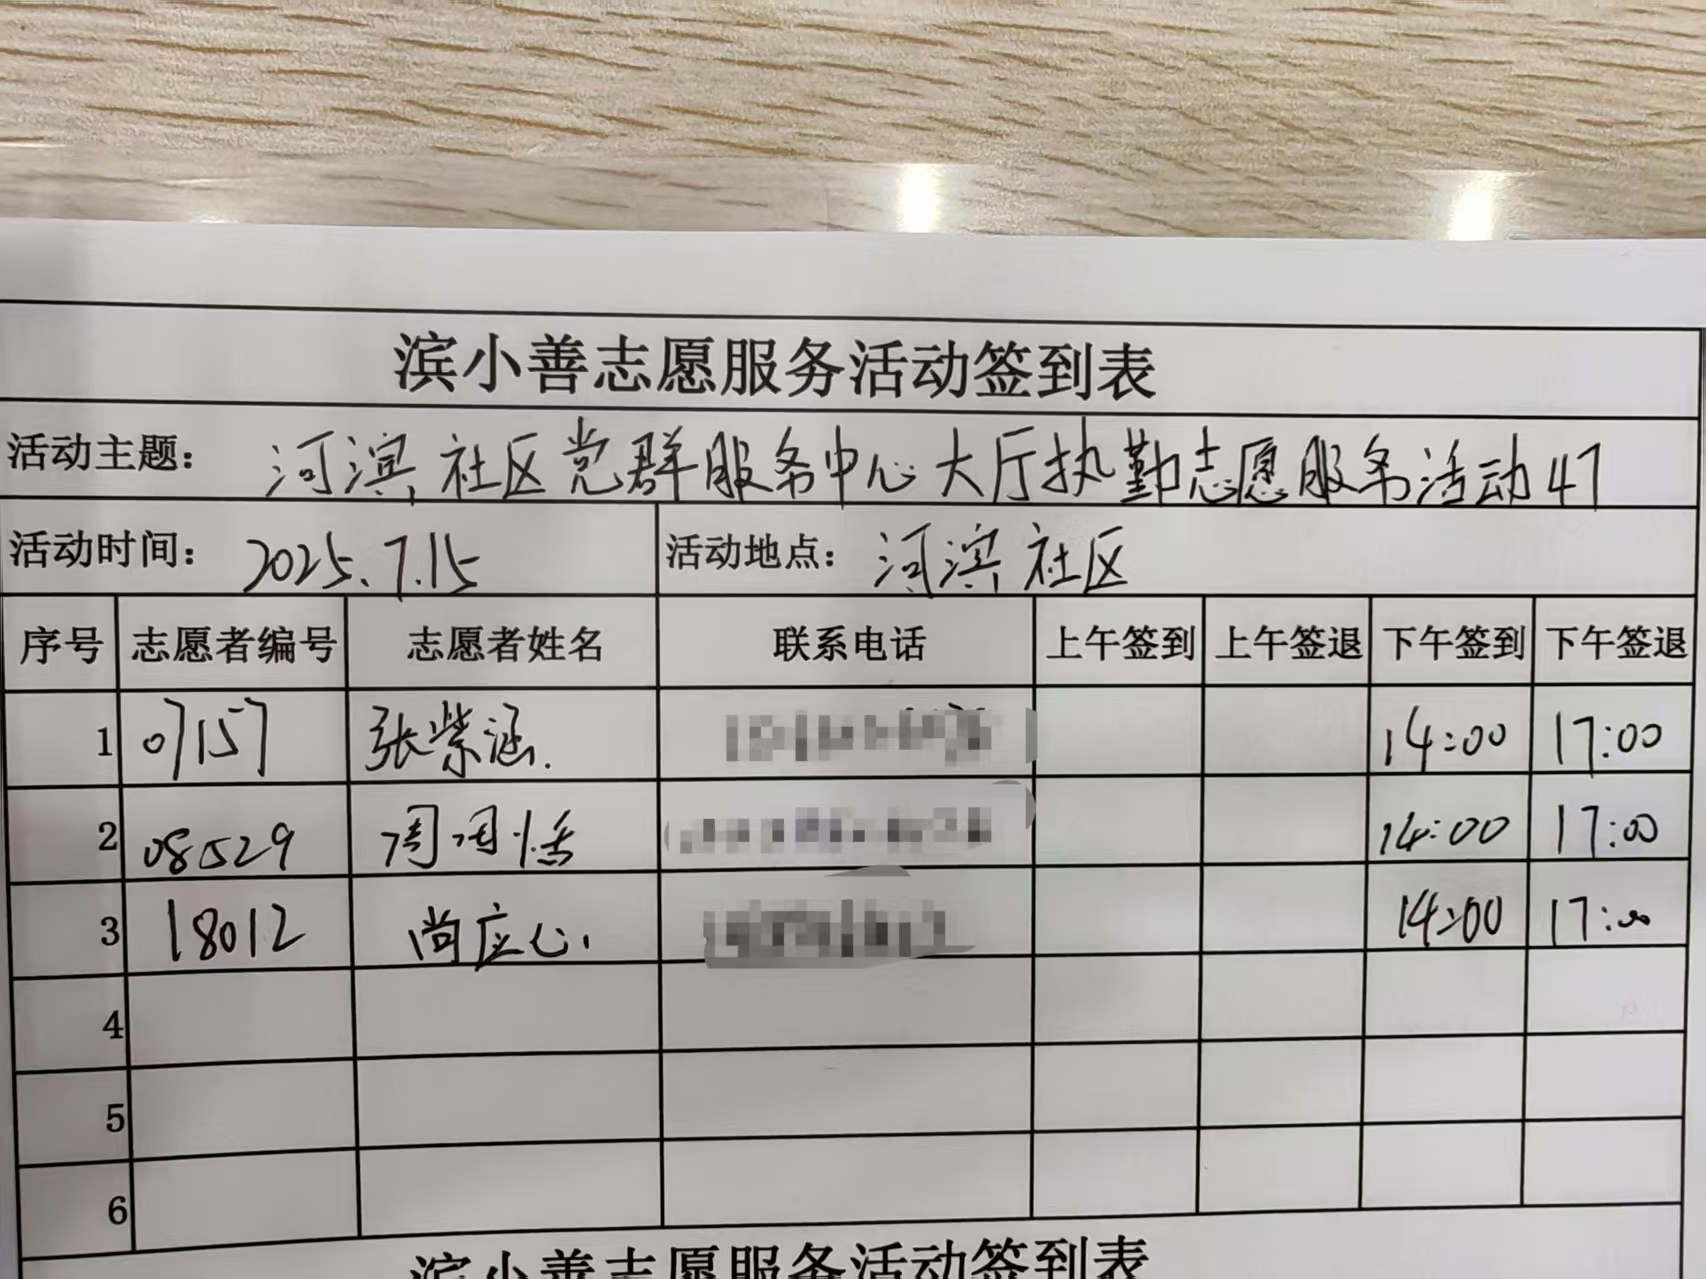 滨小善志愿服务活动签到表
活动主题： 河滨社区党群服务中心大厅执勤志愿服务活动47
活动时间： 2025.7.15 活动地点： 河滨社区
序号 志愿者编号 志愿者姓名 联系电话 上午签到 上午签退 下午签到 下午签退
1 07157 张紫涵. 14:00 17:00
2 08529 周周恬 14:00 17:00
3 18012 尚应心. 14:00 17:00
4
5
6
滨小善志愿服务活动签到表